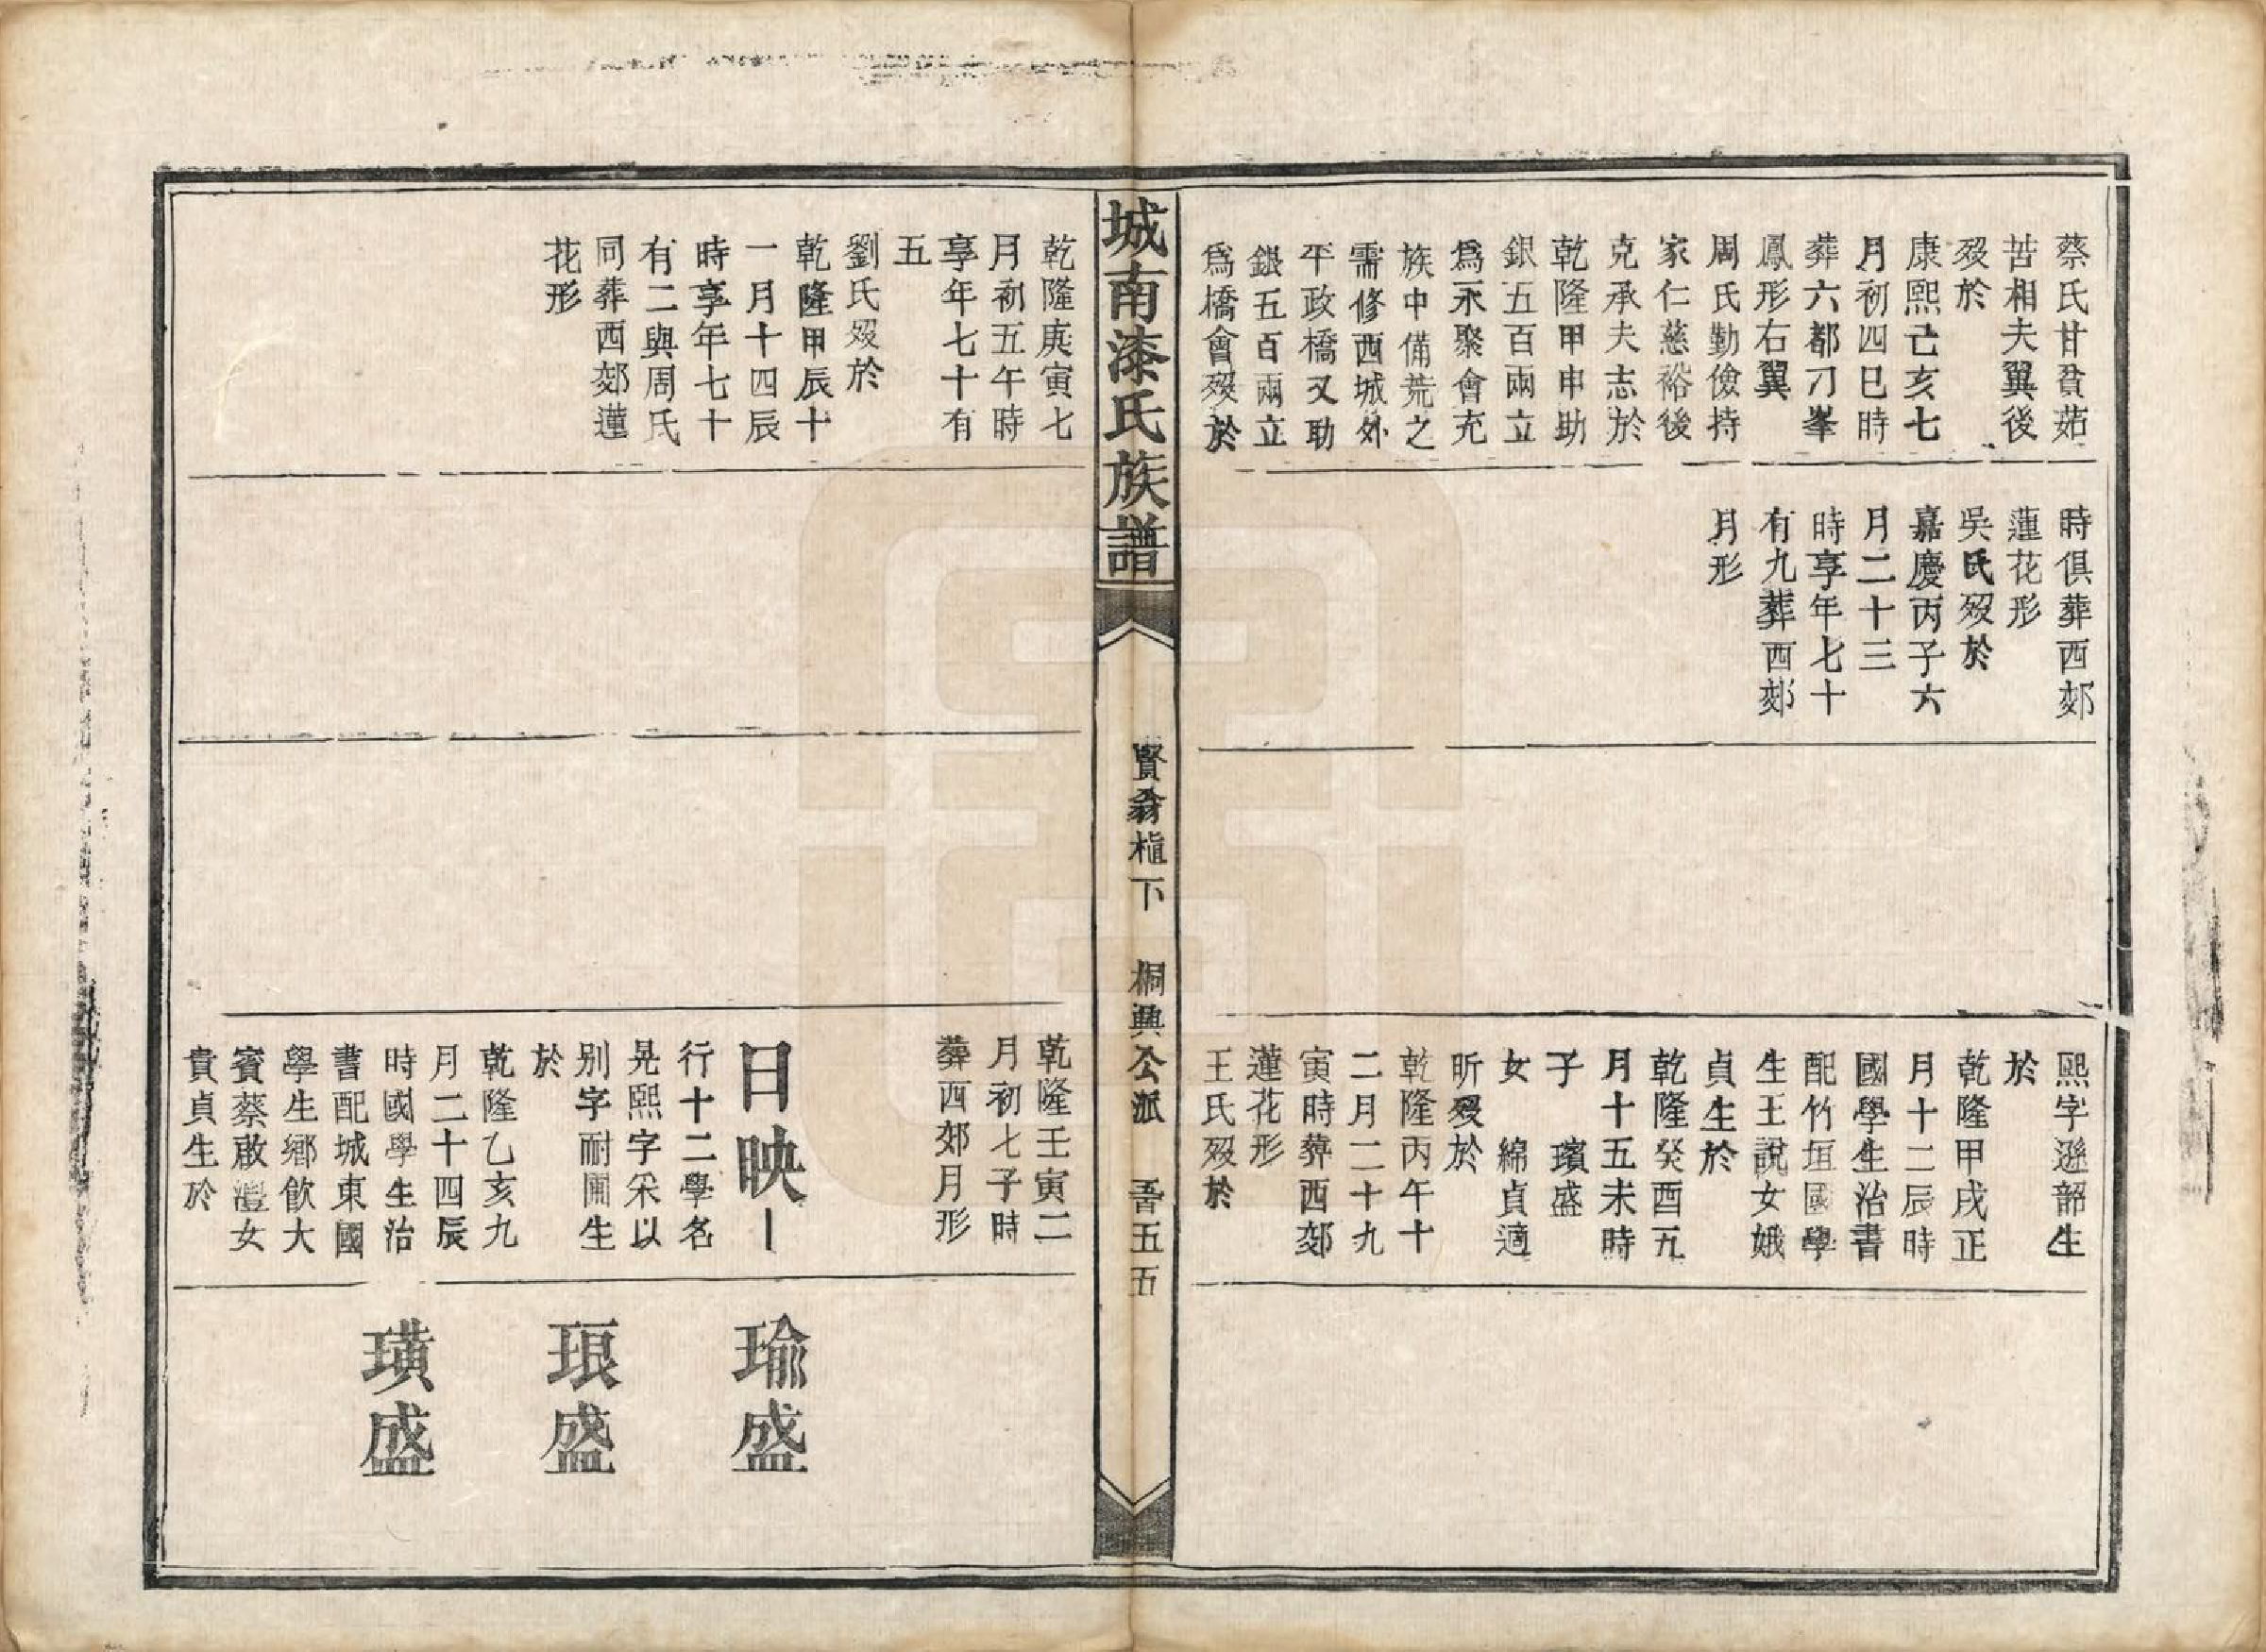 蔡氏甘貧茹
苦相夫翼後
歿於
康熙己亥七
月初四巳時
葬六都刀峯
鳳形右翼
周氏勤儉持
家仁慈裕後
克承夫志於
乾隆甲申助
銀五百兩立
爲永聚會充
族中備荒之
需修西城外
平政橋又助
銀五百兩立
爲橋會歿於
時俱葬西郊
蓮花形
吳氏歿於
嘉慶丙子六
月二十三
時享年七十
有九葬西郊
月形
熙字遜韶生
於
乾隆甲戌正
月十二辰時
國學生治書
配竹垣國學
生王說女娥
貞生於
乾隆癸酉五
月十五未時
子　璸盛
女　綿貞適
昕歿於
乾隆丙午十
二月二十九
寅時葬西郊
蓮花形
王氏歿於
城南漆氏族譜
賢翁植下　桐興公派　吾五五
乾隆庚寅七
月初五午時
享年七十有
五
劉氏歿於
乾隆甲辰十
一月十四辰
時享年七十
有二與周氏
同葬西郊蓮
花形
乾隆壬寅二
月初七子時
葬西郊月形
日映
行十二學名
晃熙字采以
別字耐圃生
於
乾隆乙亥九
月二十四辰
時國學生治
書配城東國
學生鄉飲大
賓蔡啟灃女
貴貞生於
瑜盛
琅盛
璜盛